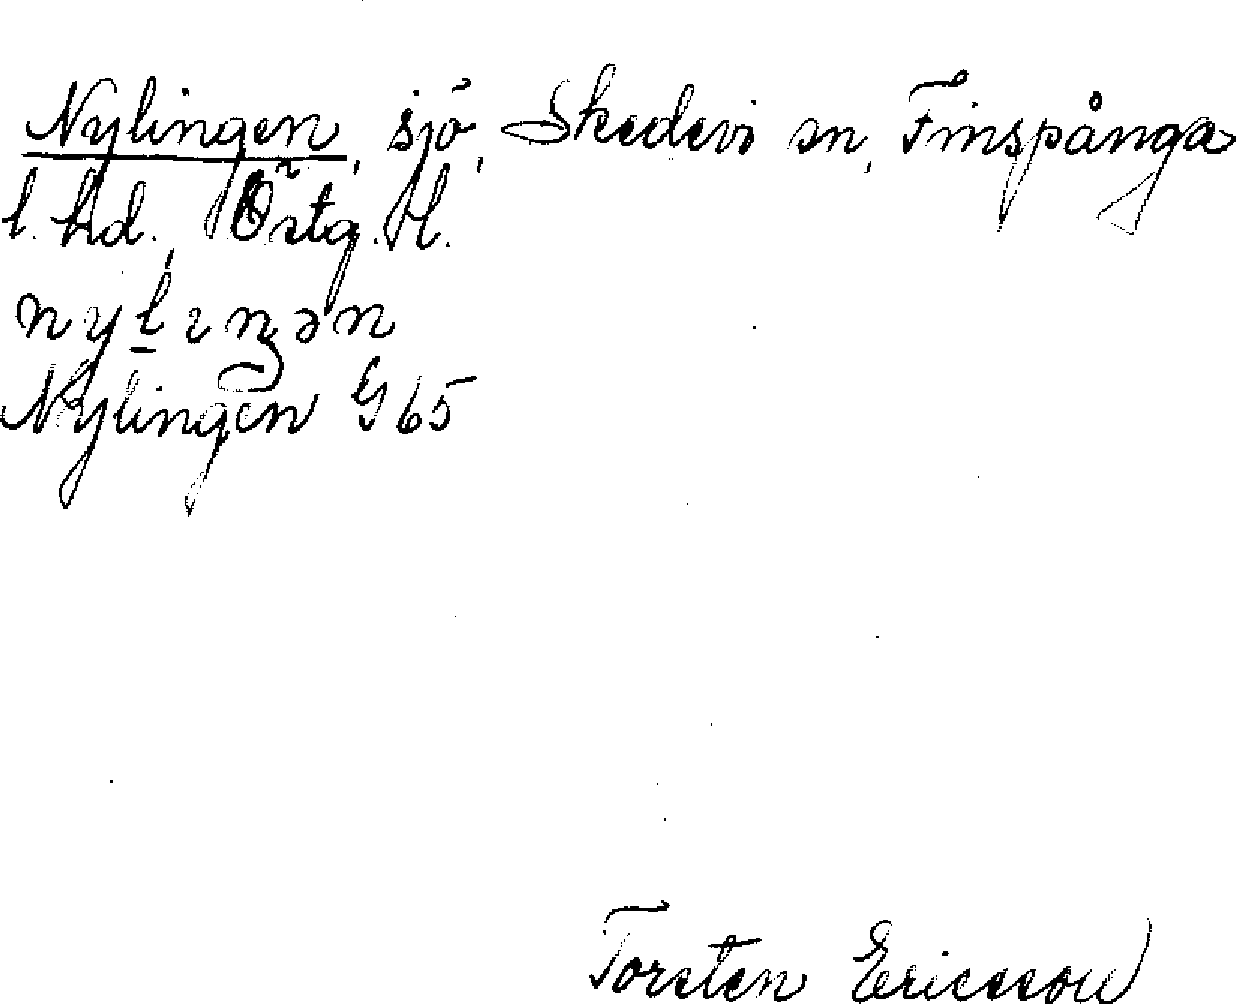 Nylingen, sjö, Skedevi sn, Finspånga
l. hd., Östg. l.
nylıŋən
Nylingen G 65
Torsten Ericsson